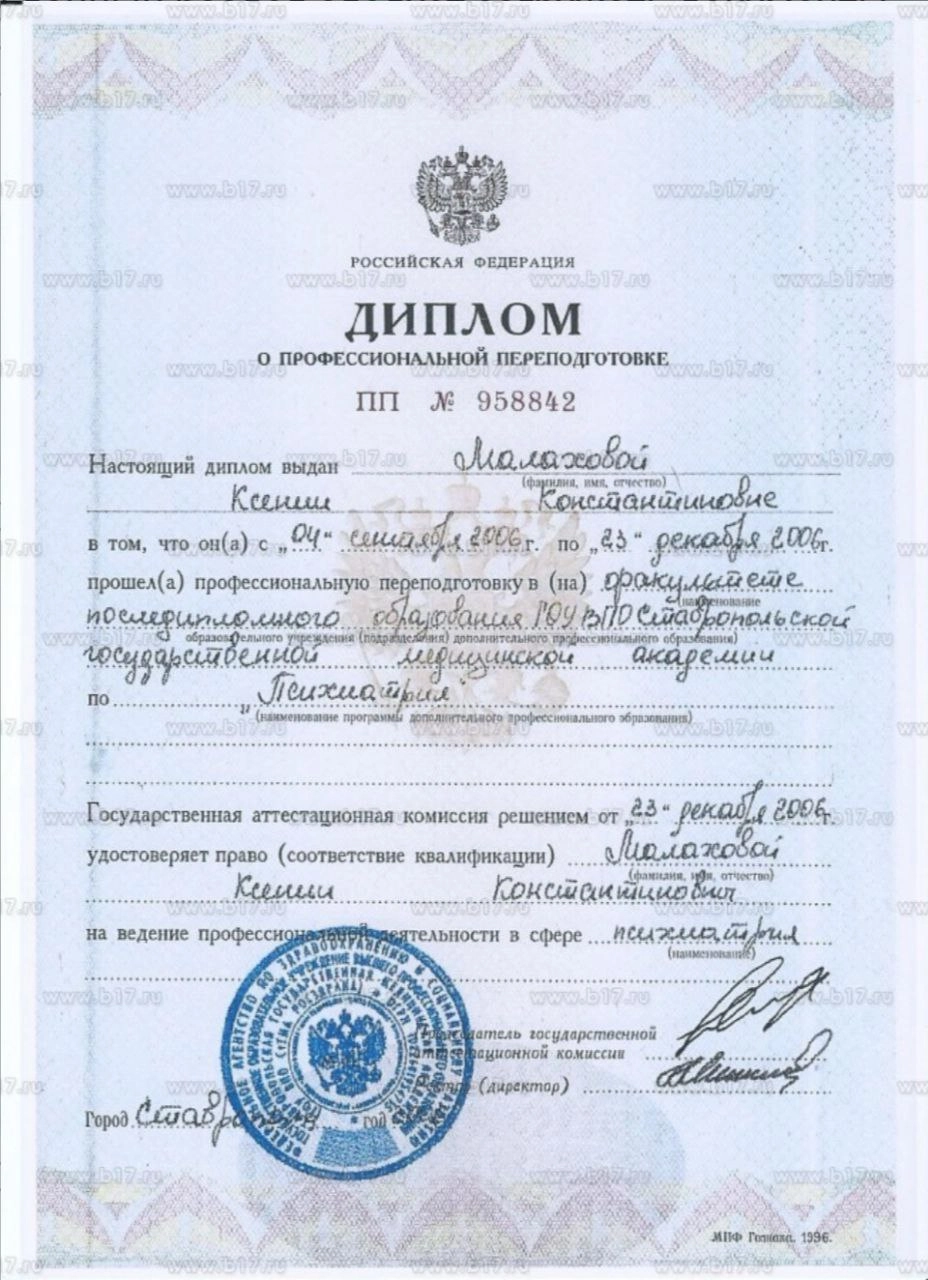 РОССИЙСКАЯ ФЕДЕРАЦИЯ
ДИПЛОМ
О ПРОФЕССИОНАЛЬНОЙ ПЕРЕПОДГОТОВКЕ
ПП № 958842
Настоящий диплом выдан Малаховой
(фамилия, имя, отчество)
Ксении Константиновне
в том, что он(а) с „04“ сентября 2006 г. по „23“ декабря 2006г.
прошел(а) профессиональную переподготовку в (на) факультете
(наименование
последипломного образования ГОУ ВПО Ставропольской
образовательного учреждения (подразделения) дополнительного профессионального образования)
государственной медицинской академии
по „Психиатрия“
(наименование программы дополнительного профессионального образования)
Государственная аттестационная комиссия решением от „23“ декабря 2006г.
удостоверяет право (соответствие квалификации) Малаховой
(фамилия, имя, отчество)
Ксении Константинович
на ведение профессиональной деятельности в сфере психиатрия
(наименование)
Председатель государственной
аттестационной комиссии
Ректор (директор)
Город год
МПФ Гознака. 1996.
www.b17.ru